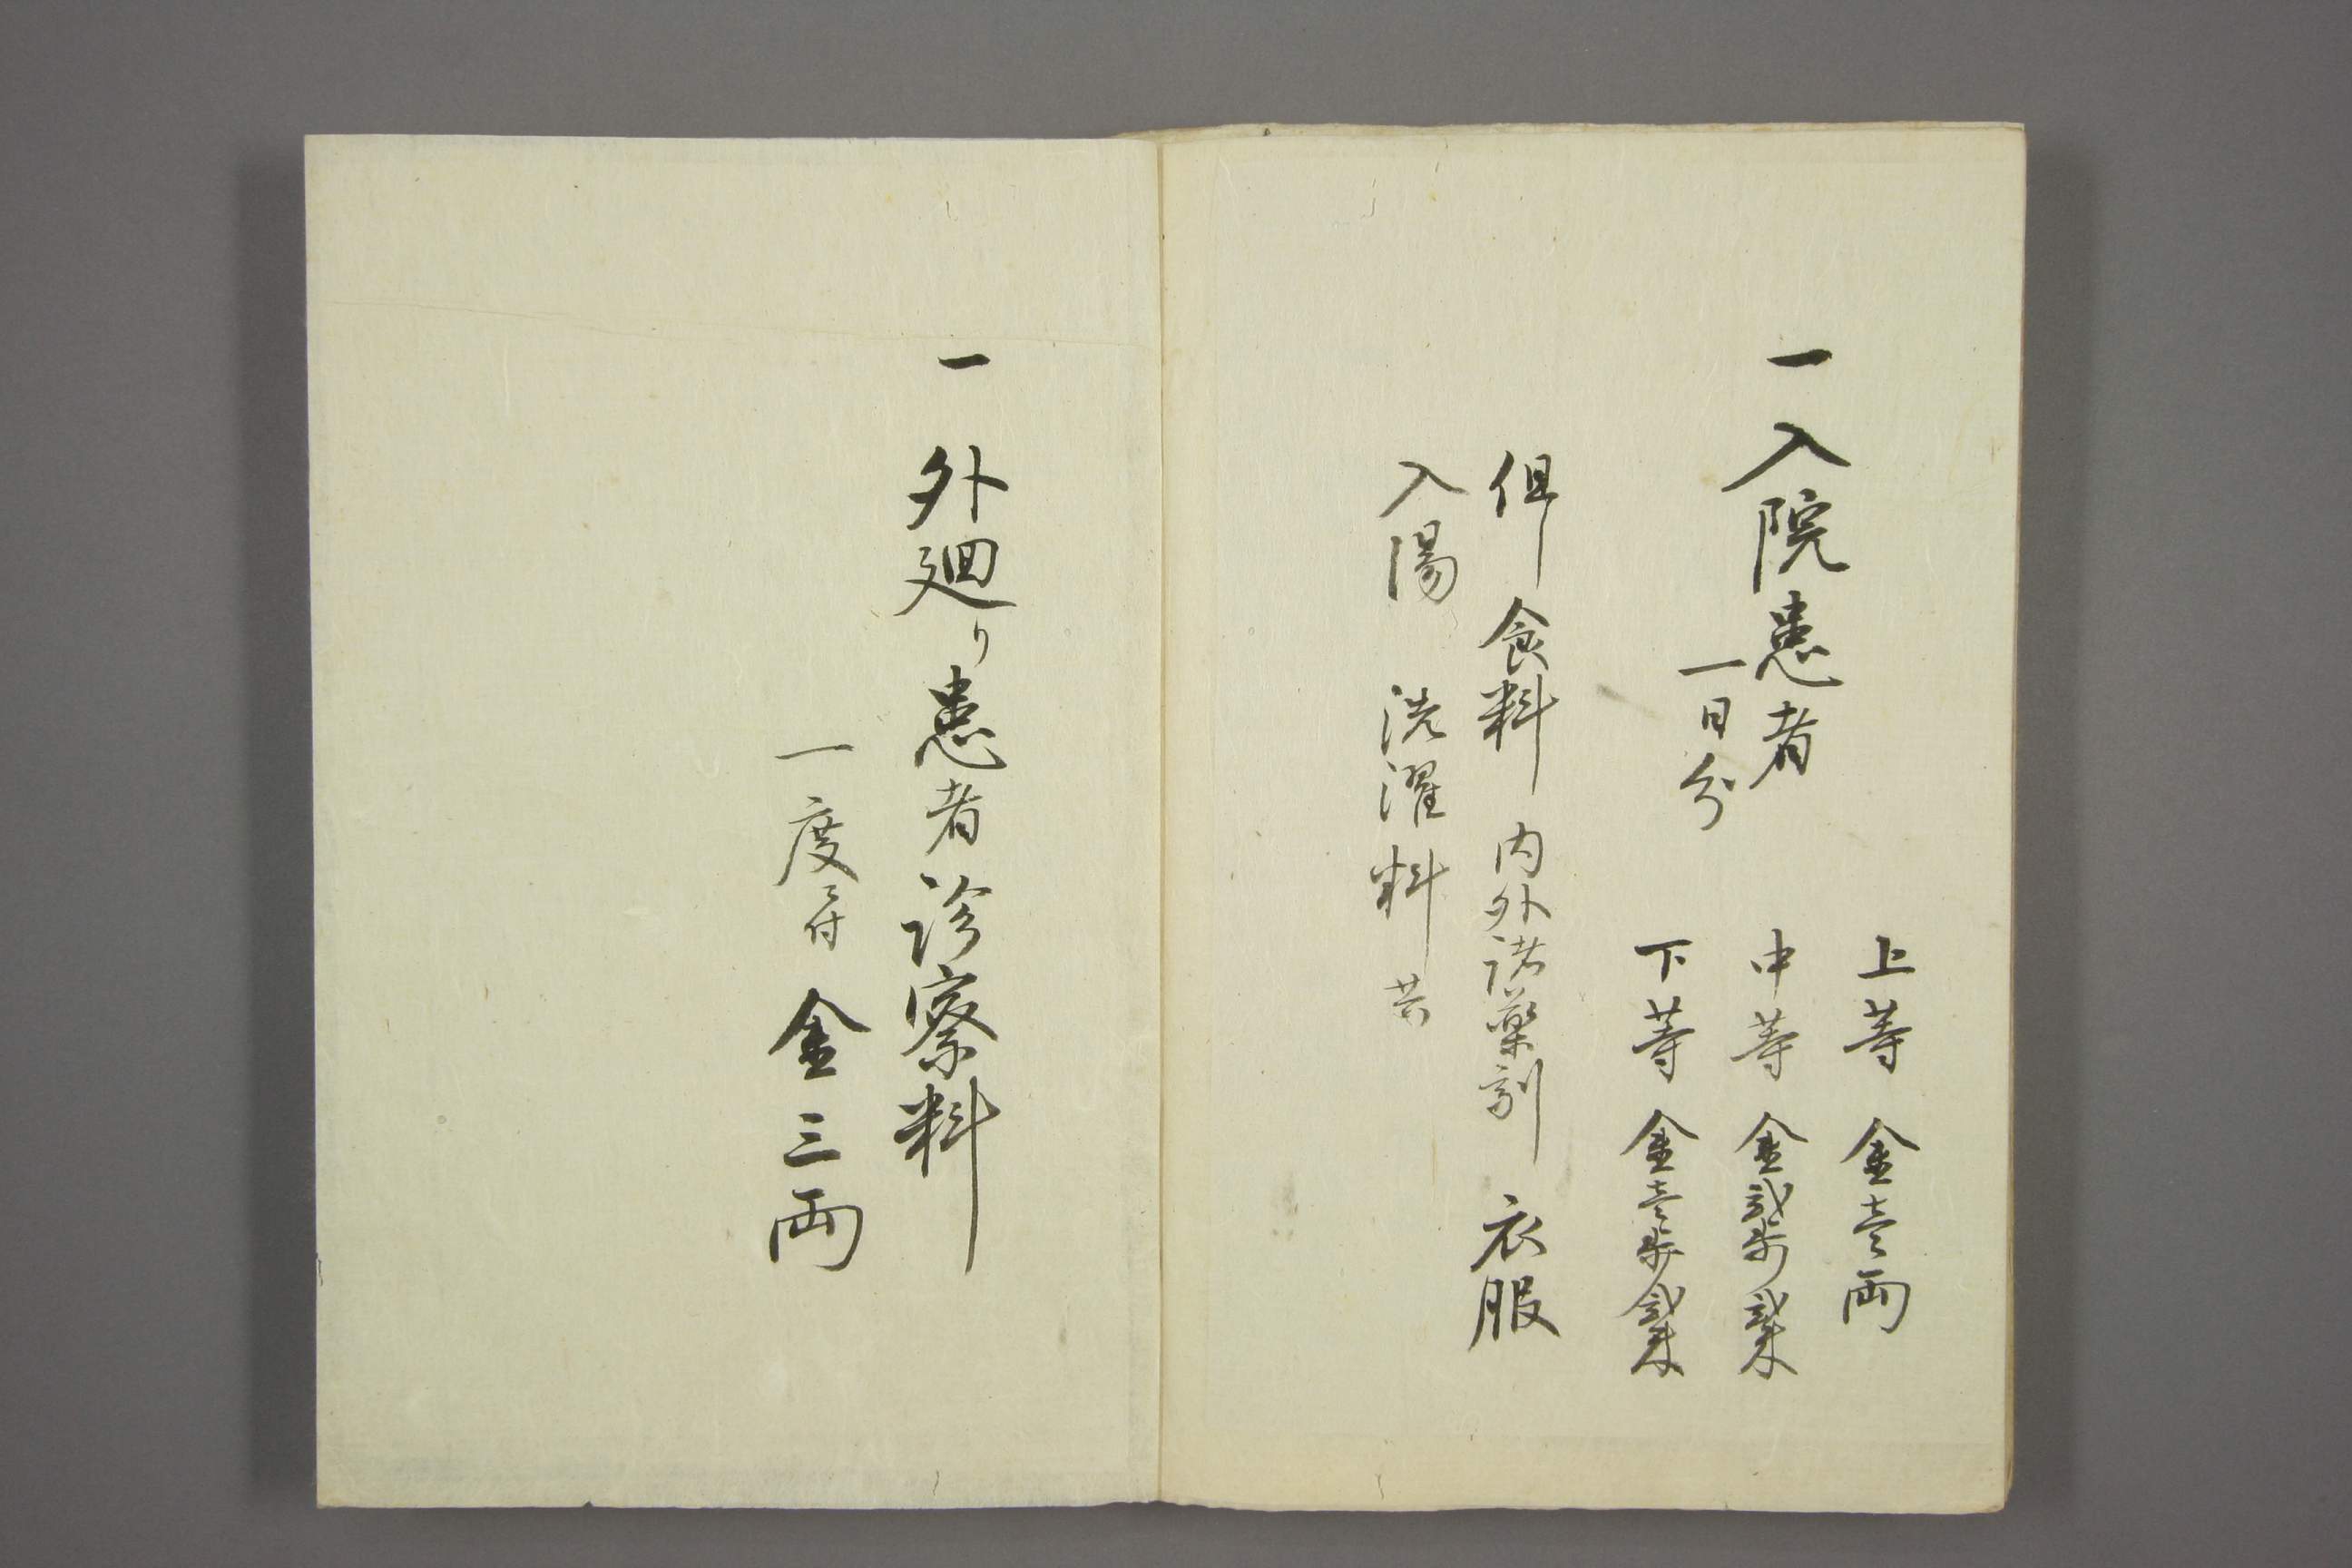 一 入院患者
一日分
上等 金壱両
中等 金弐歩弐朱
下等 金壱歩弐朱
但 食料 内外諸薬剤 衣服
入湯 洗濯料共
一 外廻り患者診察料
一度ニ付 金三両